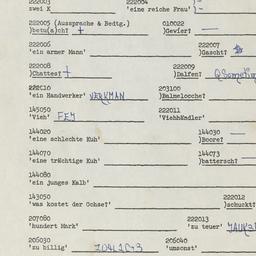 222003 222004
zwei X 'eine reiche Frau'
222005 (Aussprache & Bedtg.) 010022
)betu(a)ch? + )Gevier? —
222006
'ein armer Mann' 222007
)Gascht?
222008 222009
)Chattes? + )Dalfen?
222010 203100
'ein Handwerker' VERKMAN )Balmeloche?
145050 222011
'Vieh' FEY 'Viehhändler'
144020 144030 —
'eine schlechte Kuh' )Boore?
144070 144073
'eine trächtige Kuh' )battersch?
144080
'ein junges Kalb'
143050 222012
'was kostet der Ochse?' )schuckt?
207080 222013
'hundert Mark' 'zu teuer'
206030 206040
'zu billig' 'umsonst'